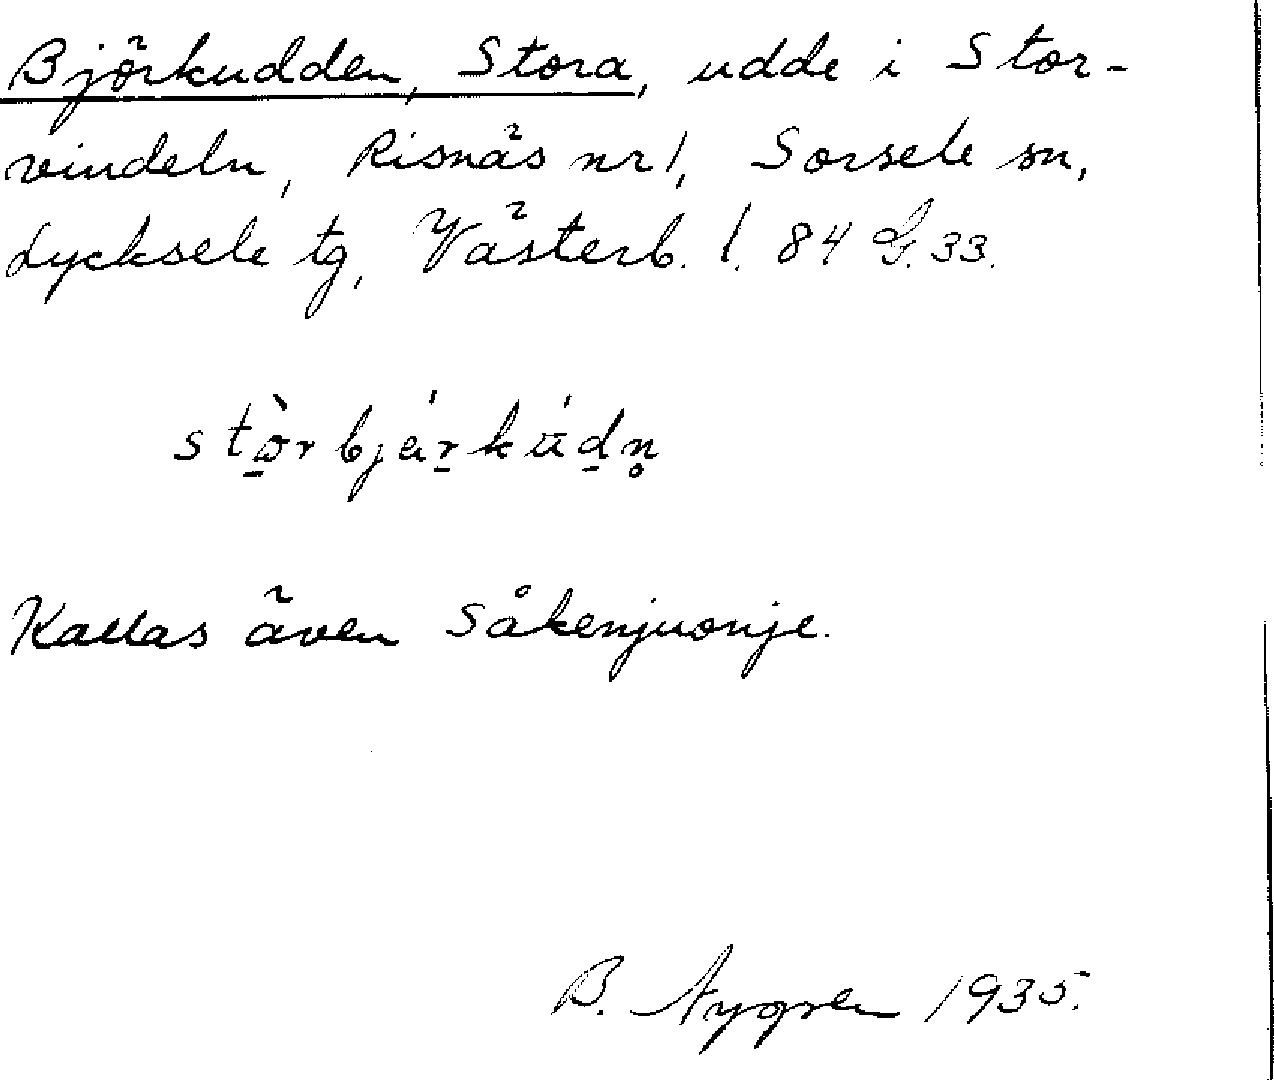 Björkudden, Stora, udde i Stor-
vindeln, Risnäs nr 1, Sorsele sn,
Lycksele tg, Västerb. l. 84 G. 33.
stòrbjárkúdn̥
Kallas även Såkenjuonje.
B. Nygren 1935.